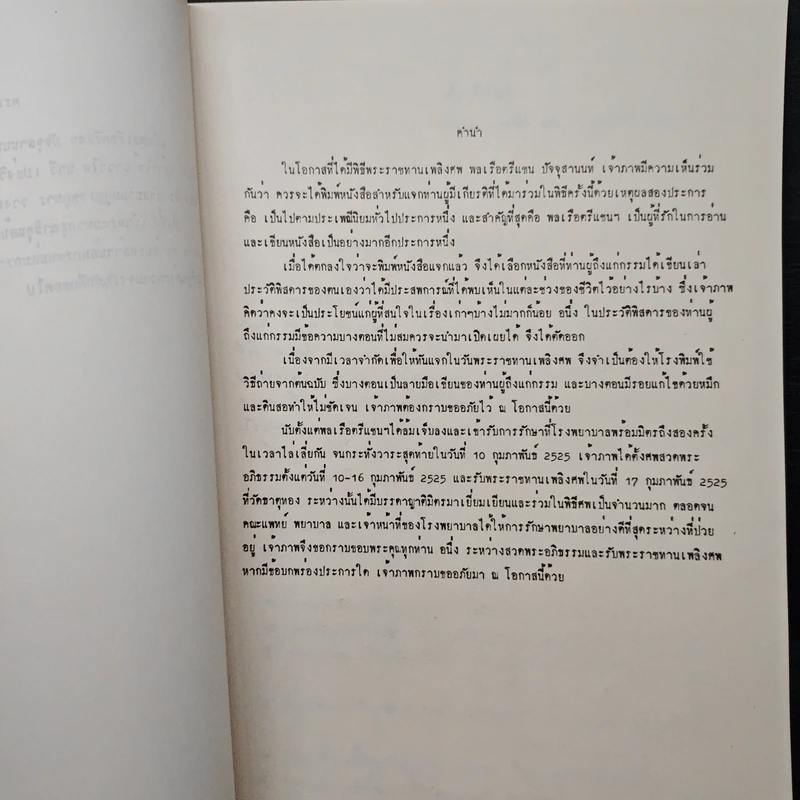 คำนำ
ในโอกาสที่ได้มีพิธีพระราชทานเพลิงศพ พลเรือตรีแชน ปัจจุสานนท์ เจ้าภาพมีความเห็นร่วม
กันว่า ควรจะได้พิมพ์หนังสือสำหรับแจกท่านผู้มีเกียรติที่ได้มาร่วมในพิธีครั้งนี้ด้วยเหตุผลสองประการ
คือ เป็นไปตามประเพณีนิยมทั่วไปประการหนึ่ง และสำคัญที่สุดคือ พลเรือตรีแชนฯ เป็นผู้ที่รักในการอ่าน
และเขียนหนังสือเป็นอย่างมากอีกประการหนึ่ง
เมื่อได้ตกลงใจว่าจะพิมพ์หนังสือแจกแล้ว จึงได้เลือกหนังสือที่ท่านผู้ถึงแก่กรรมได้เขียนเล่า
ประวัติพิสดารของตนเองว่าได้มีประสพการณ์ที่ได้พบเห็นในแต่ละช่วงของชีวิตไว้อย่างไรบ้าง ซึ่งเจ้าภาพ
คิดว่าคงจะเป็นประโยชน์แก่ผู้ที่สนใจในเรื่องเก่าๆบ้างไม่มากก็น้อย อนึ่ง ในประวัติพิสดารของท่านผู้
ถึงแก่กรรมมีข้อความบางตอนที่ไม่สมควรจะนำมาเปิดเผยได้ จึงได้ตัดออก
เนื่องจากมีเวลาจำกัดเพื่อให้ทันแจกในวันพระราชทานเพลิงศพ จึงจำเป็นต้องให้โรงพิมพ์ใช้
วิธีถ่ายจากต้นฉบับ ซึ่งบางตอนเป็นลายมือเขียนของท่านผู้ถึงแก่กรรม และบางตอนมีรอยแก้ไขด้วยหมึก
และดินสอทำให้ไม่ชัดเจน เจ้าภาพต้องกราบขออภัยไว้ ณ โอกาสนี้ด้วย
นับตั้งแต่พลเรือตรีแชนฯได้ล้มเจ็บลงและเข้ารับการรักษาที่โรงพยาบาลพร้อมมิตรถึงสองครั้ง
ในเวลาไล่เลี่ยกัน จนกระทั่งวาระสุดท้ายในวันที่ 10 กุมภาพันธ์ 2525 เจ้าภาพได้ตั้งศพสวดพระ
อภิธรรมตั้งแต่วันที่ 10-16 กุมภาพันธ์ 2525 และรับพระราชทานเพลิงศพในวันที่ 17 กุมภาพันธ์ 2525
ที่วัดธาตุทอง ระหว่างนั้นได้มีบรรดาญาติมิตรมาเยี่ยมเยียนและร่วมในพิธีศพเป็นจำนวนมาก ตลอดจน
คณะแพทย์ พยาบาล และเจ้าหน้าที่ของโรงพยาบาลได้ให้การรักษาพยาบาลอย่างดีที่สุดระหว่างที่ป่วย
อยู่ เจ้าภาพจึงขอกราบขอบพระคุณทุกท่าน อนึ่ง ระหว่างสวดพระอภิธรรมและรับพระราชทานเพลิงศพ
หากมีข้อบกพร่องประการใด เจ้าภาพกราบขออภัยมา ณ โอกาสนี้ด้วย